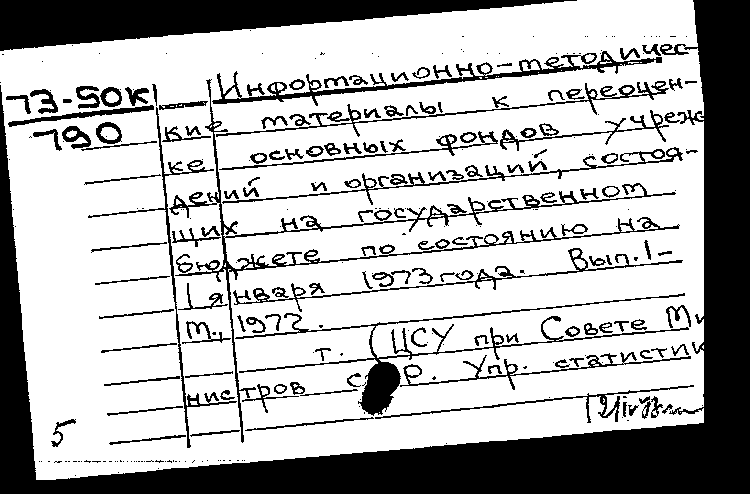 73-50К
790
Информационно-методичес-
кие материалы к переоцен-
ке основных фондов учреж
дений и организаций, состоя-
щих на государственном
бюджете по состоянию на
1 января 1973 года. Вып. 1-
М., 1972.
т. (ЦСУ при Совете Ми
нистров Р. Упр. статистик
5